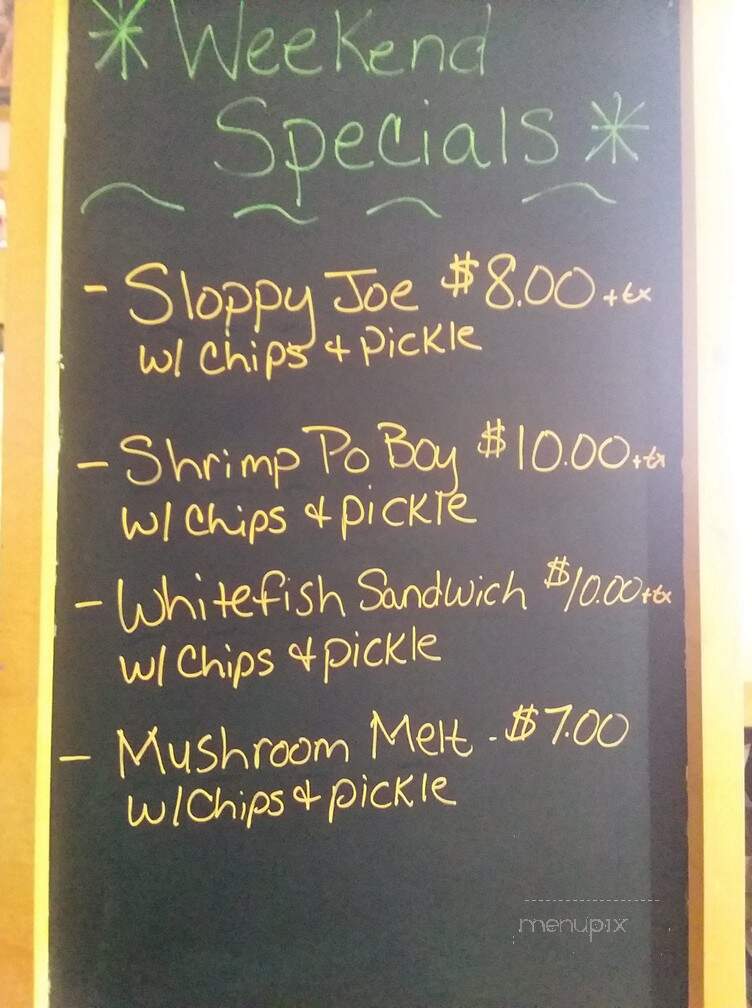 * Weekend
Specials *
- Sloppy Joe $8.00 +tx
w/ chips + pickle
- Shrimp Po Boy $10.00 +tx
w/ chips + pickle
- Whitefish Sandwich $10.00 +tx
w/ chips + pickle
- Mushroom Melt - $7.00
w/ chips + pickle
menupix